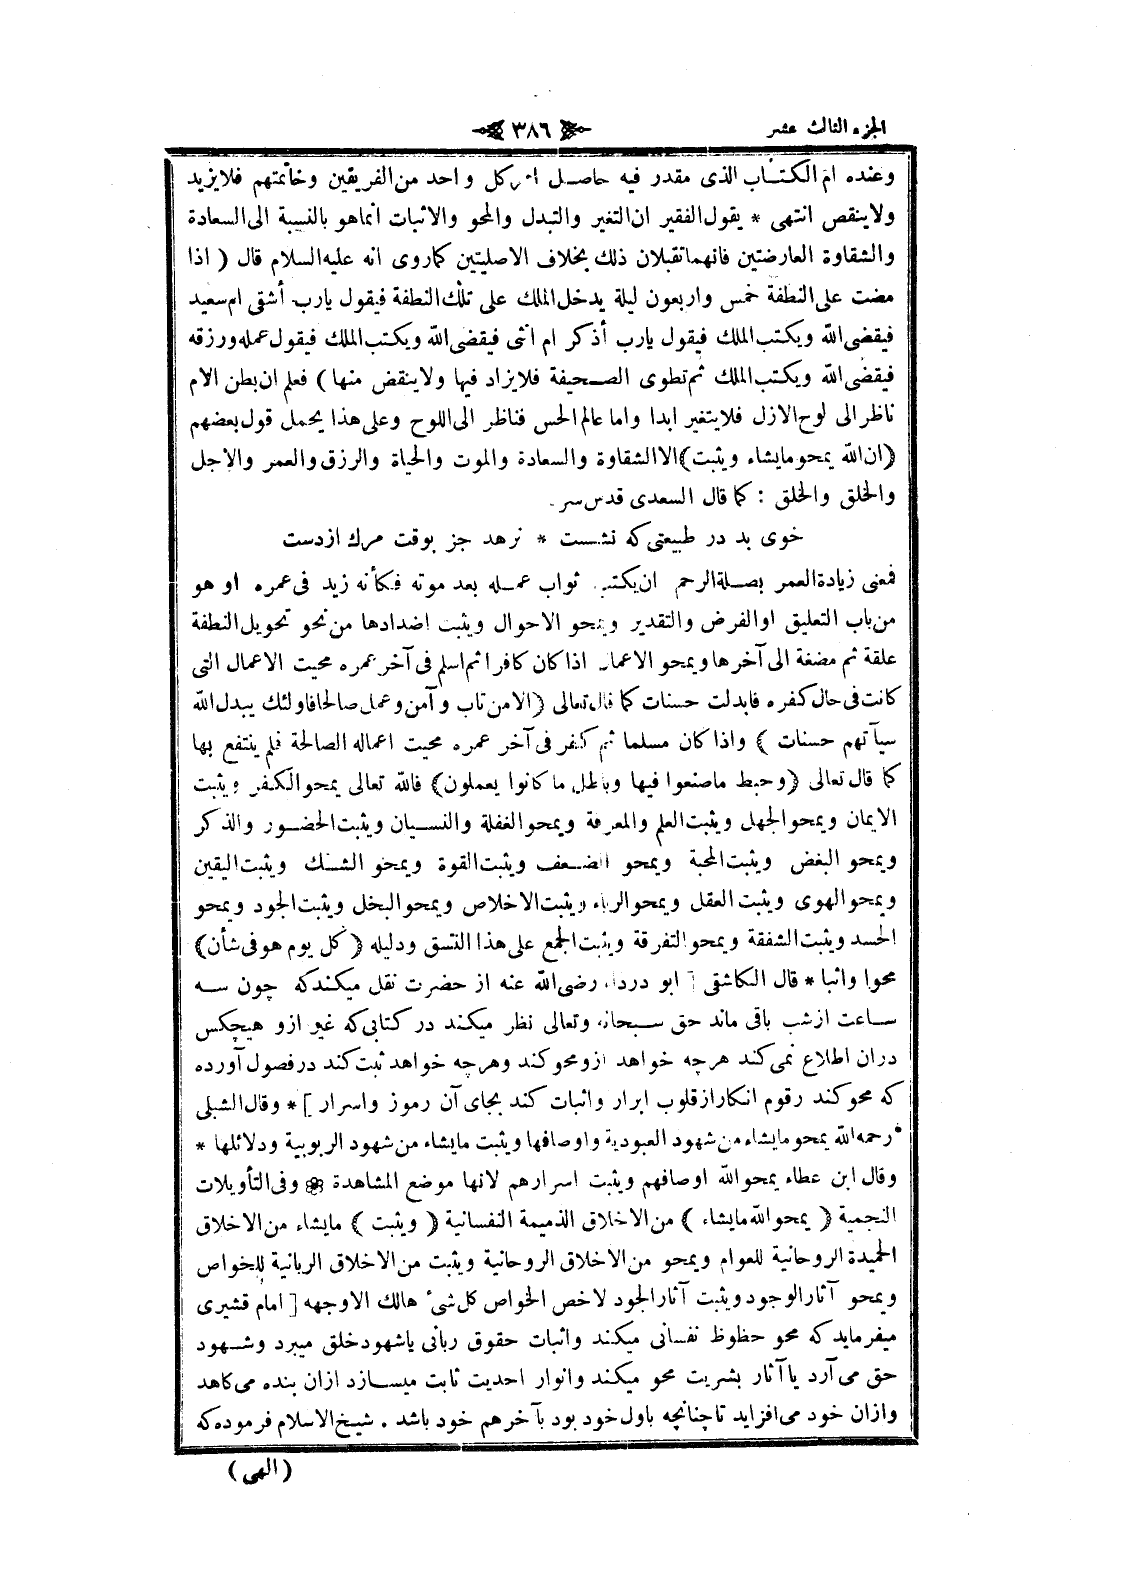 الجزء الثالث عشر
٣٨٦
وعنده ام الكتاب الذى مقدر فيه حاصل امر كل واحد من الفريقين وخاتمتهم فلا يزيد
ولا ينقص انتهى * يقول الفقير ان التغير والتبدل والمحو والاثبات انما هو بالنسبة الى السعادة
والشقاوة العارضتين فانهما تقبلان ذلك بخلاف الاصليتين كما روى انه عليه السلام قال ( اذا
مضت على النطفة خمس واربعون ليلة يدخل الملك على تلك النطفة فيقول يارب أشقى ام سعيد
فيقضى الله ويكتب الملك فيقول يارب أذكر ام انثى فيقضى الله ويكتب الملك فيقول عمله ورزقه
فيقضى الله ويكتب الملك ثم تطوى الصحيفة فلا يزاد فيها ولا ينقض منها ) فعلم ان بطن الام
ناظر الى لوح الازل فلا يتغير ابدا واما عالم الحس فناظر الى اللوح وعلى هذا يحمل قول بعضهم
(ان الله يمحو مايشاء ويثبت) الا الشقاوة والسعادة والموت والحياة والرزق والعمر والاجل
والخلق والخلق : كما قال السعدى قدس سره
خوى بد در طبيعتى كه نشست * نرهد جز بوقت مرك از دست
فمعنى زيادة العمر بصلة الرحم ان يكتب ثواب عمله بعد موته فكأنه زيد فى عمره او هو
من باب التعليق او الفرض والتقدير ويمحو الاحوال ويثبت اضدادها من نحو تحويل النطفة
علقة ثم مضغة الى آخرها ويمحو الاعمال اذا كان كافرا ثم اسلم فى آخر عمره محيت الاعمال التى
كانت فى حال كفره فابدلت حسنات كما قال تعالى (الا من تاب وآمن وعمل صالحا فاولئك يبدل الله
سيآتهم حسنات ) واذا كان مسلما ثم كفر فى آخر عمره محيت اعماله الصالحة فلم ينتفع بها
كما قال تعالى (وحبط ماصنعوا فيها وباطل ما كانوا يعملون) فالله تعالى يمحو الكفر ويثبت
الايمان ويمحو الجهل ويثبت العلم والمعرفة ويمحو الغفلة والنسيان ويثبت الحضور والذكر
ويمحو البغض ويثبت المحبة ويمحو الضعف ويثبت القوة ويمحو الشك ويثبت اليقين
ويمحو الهوى ويثبت العقل ويمحو الرياء ويثبت الاخلاص ويمحو البخل ويثبت الجود ويمحو
الحسد ويثبت الشفقة ويمحو التفرقة ويثبت الجمع على هذا النسق ودليله (كل يوم هو فى شأن)
محوا واثباتا * قال الكاشفى [ ابو درداء رضى الله عنه از حضرت نقل ميكند كه چون سه
ساعت از شب باقى ماند حق سبحانه وتعالى نظر ميكند در كتابى كه غير ازو هيچكس
دران اطلاع نمى كند هرچه خواهد ازو محو كند وهرچه خواهد ثبت كند در فصول آورده
كه محو كند رقوم انكار از قلوب ابرار واثبات كند بجاى آن رموز واسرار ] * وقال الشبلى
رحمه الله يمحو مايشاء من شهود العبودية واوصافها ويثبت مايشاء من شهود الربوبية ودلائلها *
وقال ابن عطاء يمحو الله اوصافهم ويثبت اسرارهم لانها موضع المشاهدة * وفى التأويلات
النجمية ( يمحو الله مايشاء ) من الاخلاق الذميمة النفسانية ( ويثبت ) مايشاء من الاخلاق
الحميدة الروحانية للعوام ويمحو من الاخلاق الروحانية ويثبت من الاخلاق الربانية للخواص
ويمحو آثار الوجود ويثبت آثار الجود لاخص الخواص كل شىء هالك الا وجهه [ امام قشيرى
ميفرمايد كه محو حظوظ نفسانى ميكند واثبات حقوق ربانى ياشهود خلق ميبرد وشهود
حق مى آرد يا آثار بشريت محو ميكند وانوار احديت ثابت ميسازد ازان بنده مى كاهد
وازان خود مى افزايد تا چنانچه باول خود بود بآخر هم خود باشد . شيخ الاسلام فرموده كه
(الهى)